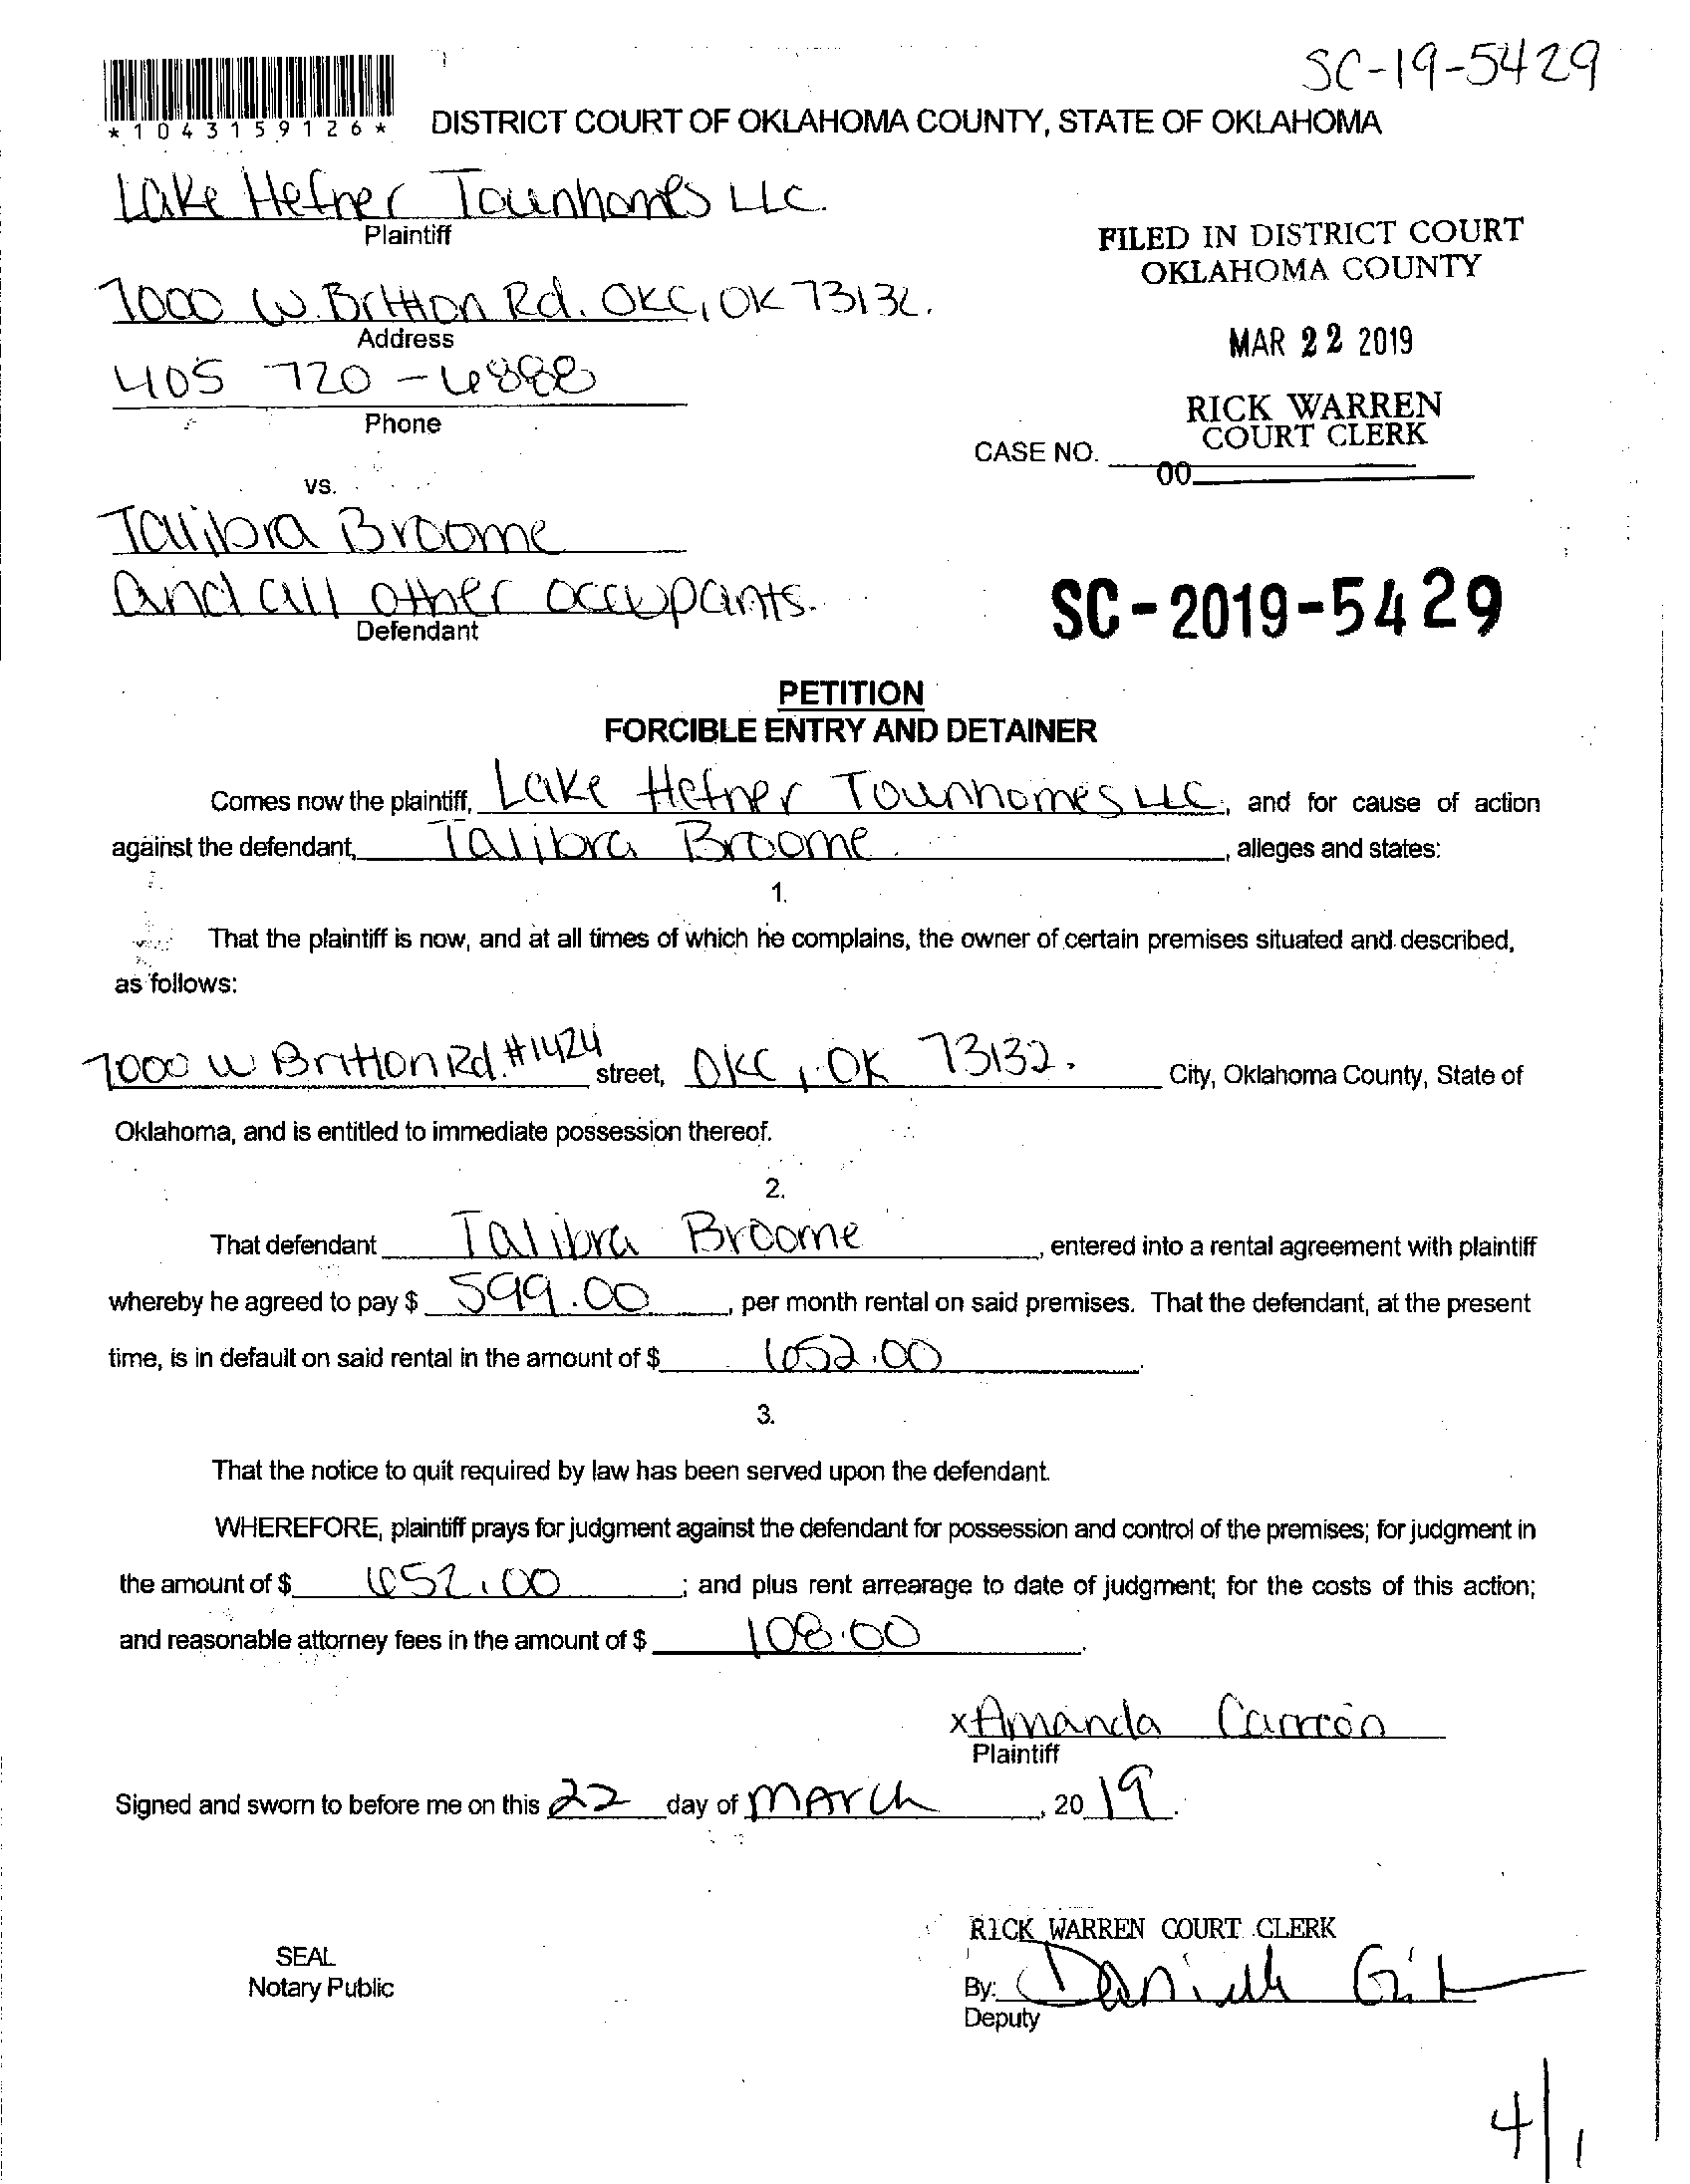 SC-19-5429
*1043159126*
DISTRICT COURT OF OKLAHOMA COUNTY, STATE OF OKLAHOMA
Lake Hefner Townhomes LLC.
Plaintiff
FILED IN DISTRICT COURT
OKLAHOMA COUNTY
7000 W. Britton Rd. OKC, OK 73132.
Address
MAR 22 2019
405 720-6888
Phone
RICK WARREN
COURT CLERK
CASE NO.
00
vs.
Talibra Broome
and all other occupants.
Defendant
SC-2019-5429
PETITION
FORCIBLE ENTRY AND DETAINER
Comes now the plaintiff, Lake Hefner Townhomes LLC, and for cause of action
against the defendant, Talibra Broome, alleges and states:
1.
That the plaintiff is now, and at all times of which he complains, the owner of certain premises situated and described,
as follows:
7000 W Britton Rd. #1424 street, OKC, OK 73132. City, Oklahoma County, State of
Oklahoma, and is entitled to immediate possession thereof.
2.
That defendant Talibra Broome, entered into a rental agreement with plaintiff
whereby he agreed to pay $ 599.00, per month rental on said premises. That the defendant, at the present
time, is in default on said rental in the amount of $ 652.00.
3.
That the notice to quit required by law has been served upon the defendant.
WHEREFORE, plaintiff prays for judgment against the defendant for possession and control of the premises; for judgment in
the amount of $ 652.00; and plus rent arrearage to date of judgment; for the costs of this action;
and reasonable attorney fees in the amount of $ 108.00.
x Amanda Carreon
Plaintiff
Signed and sworn to before me on this 22 day of March, 2019.
RICK WARREN COURT CLERK
SEAL
Notary Public
By: Danielle
Deputy
4/1